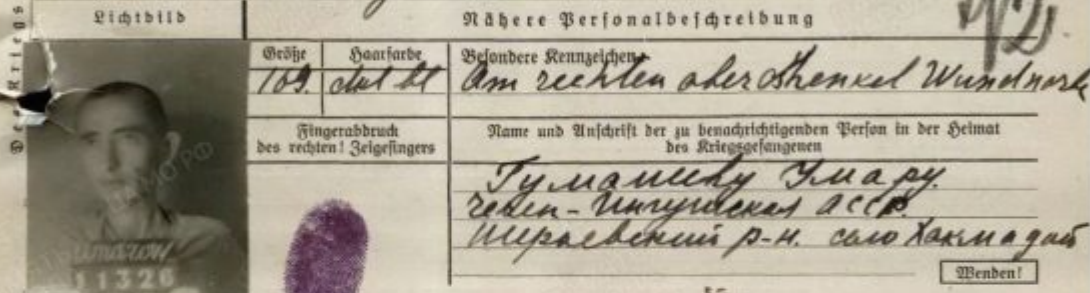 Lichtbild
Nähere Personalbeschreibung
Größe
Haarfarbe
Besondere Kennzeichen:
169.
Am rechten oberschenkel Wundnarbe
Fingerabdruck
des rechten! Zeigefingers
Name und Anschrift der zu benachrichtigenden Person in der Heimat
des Kriegsgefangenen
Умару
Чечен-Ингушская АССР
р-н. село
11326
Wenden!